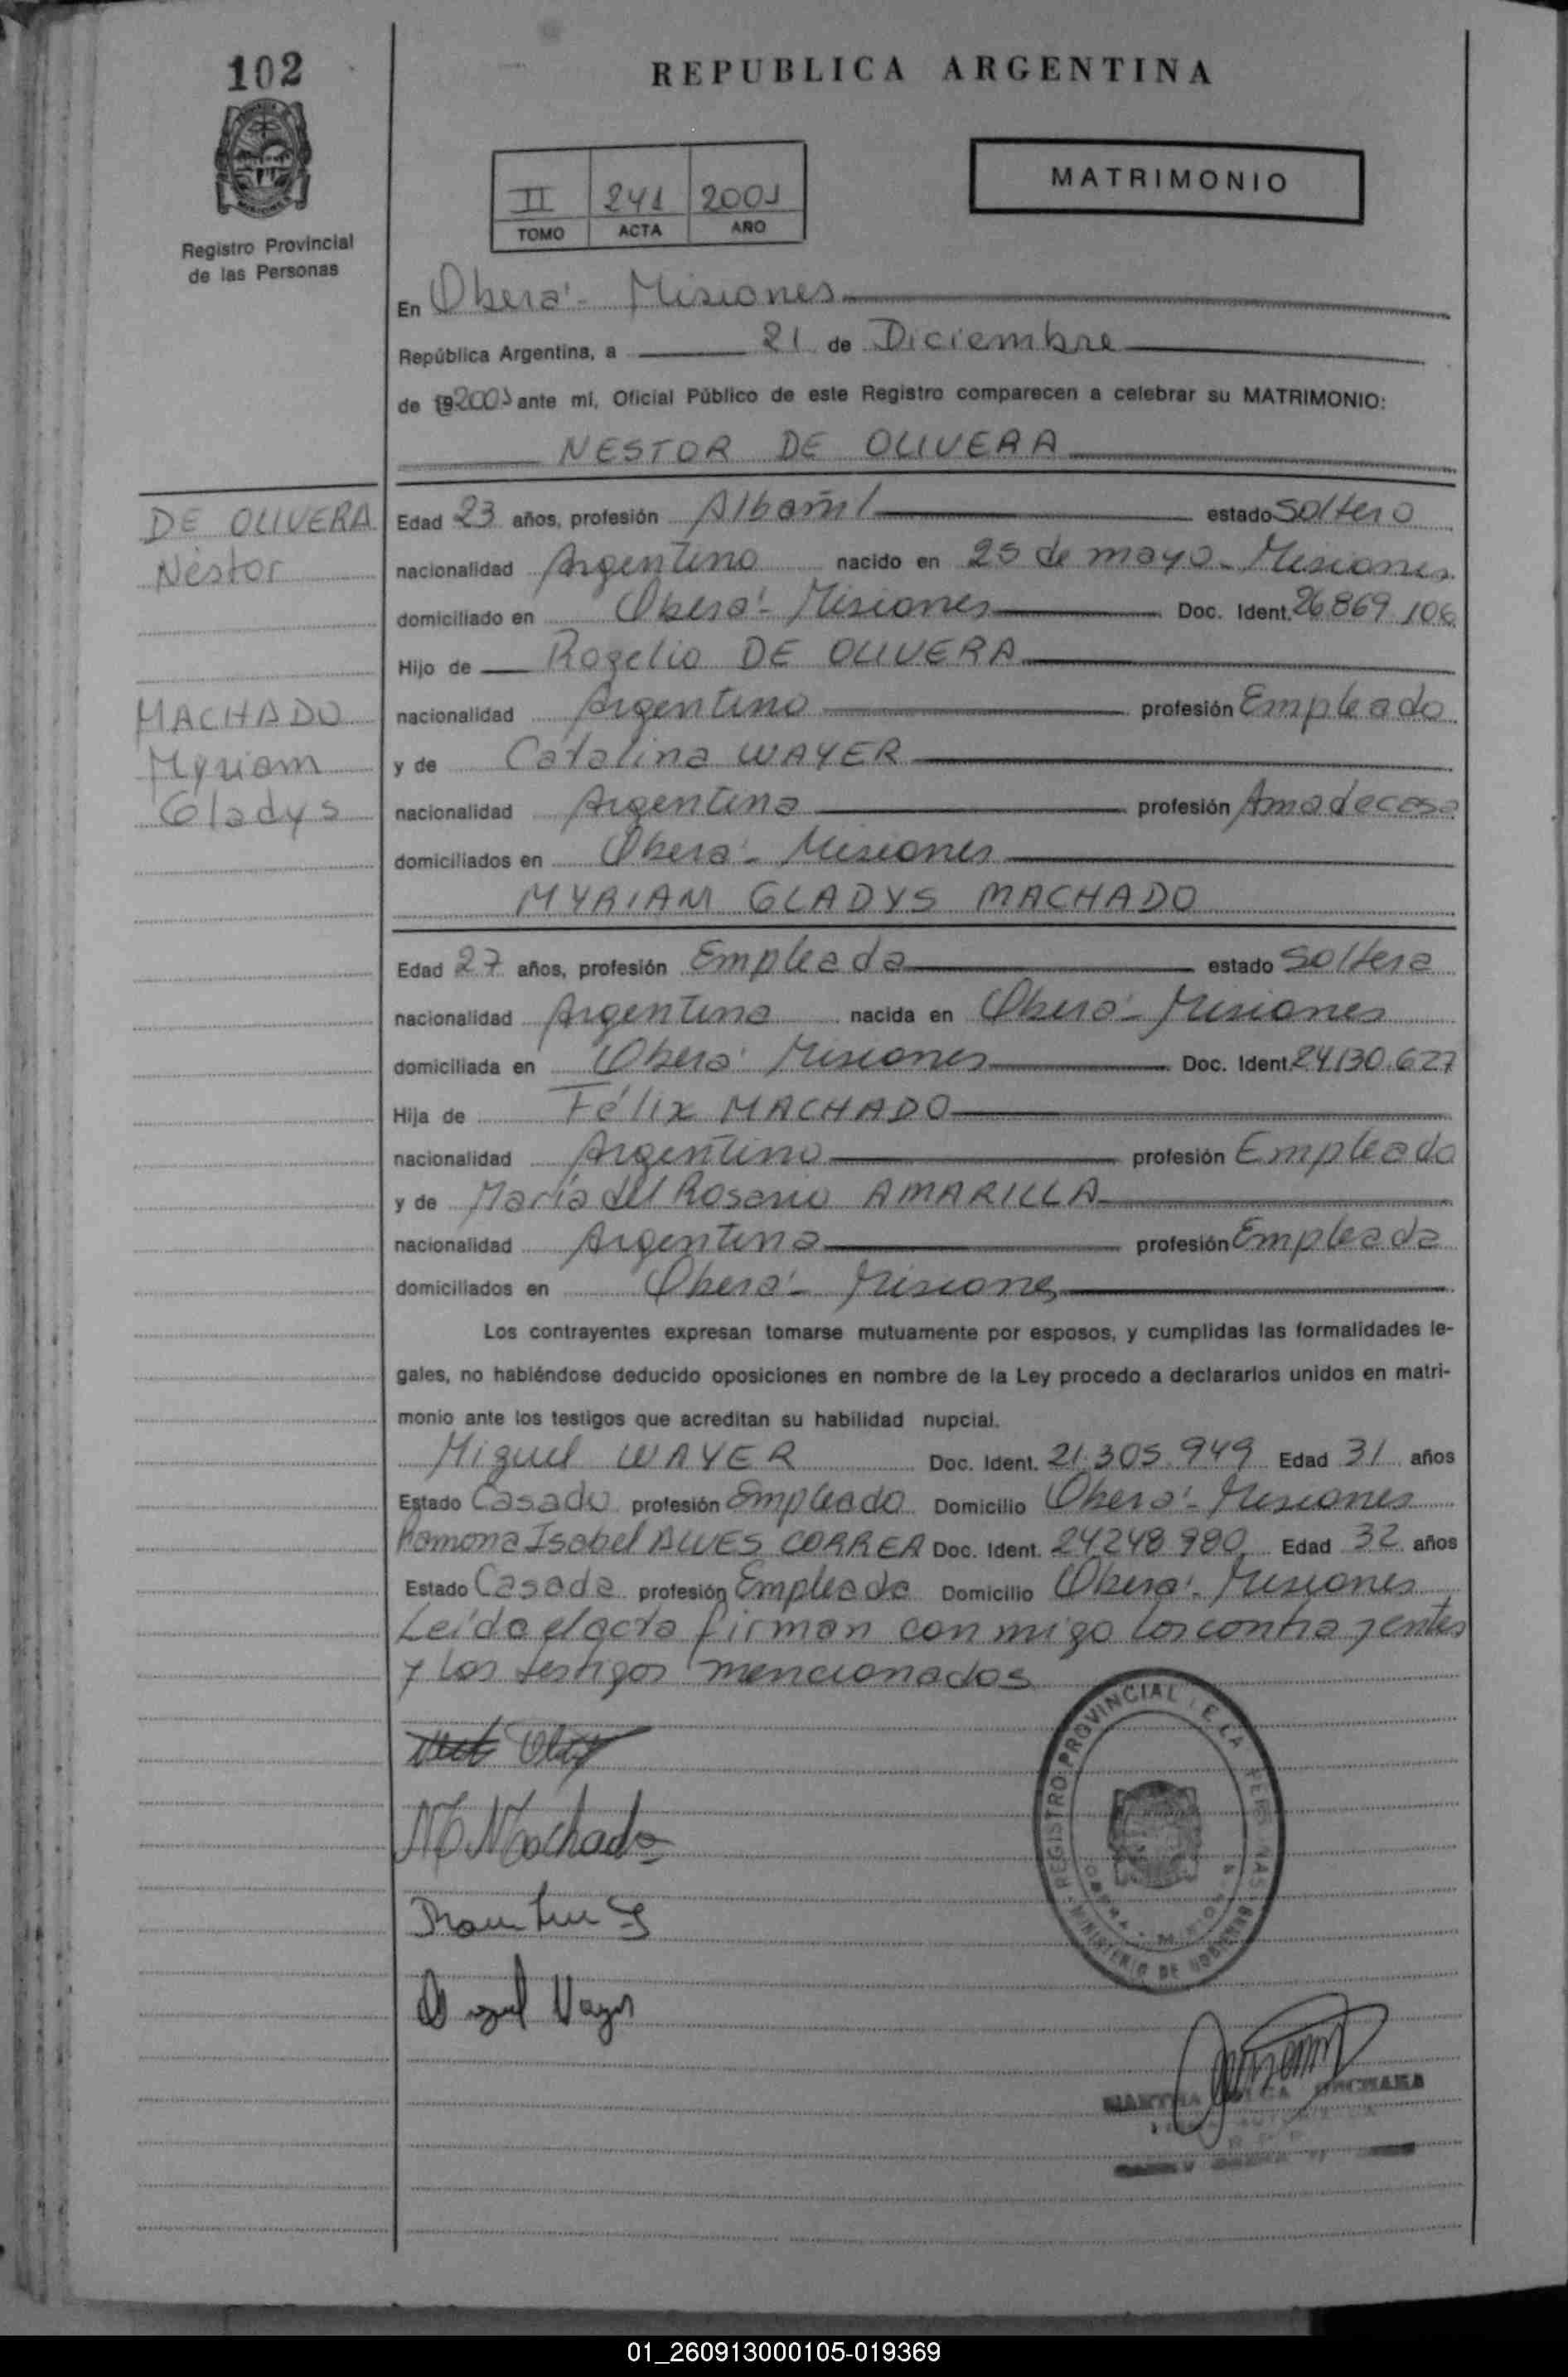 102
REPUBLICA ARGENTINA
Registro Provincial
de las Personas
II 241 2001
TOMO ACTA AÑO
MATRIMONIO
En Oberá - Misiones
República Argentina, a 21 de Diciembre
de 19 2001 ante mí, Oficial Público de este Registro comparecen a celebrar su MATRIMONIO:
NESTOR DE OLIVERA
DE OLIVERA
Néstor
MACHADO
Myriam
Gladys
Edad 23 años, profesión Albañil estado soltero
nacionalidad Argentino nacido en 25 de mayo - Misiones
domiciliado en Oberá - Misiones Doc. Ident. 26.869.106
Hijo de Rogelio DE OLIVERA
nacionalidad Argentino profesión Empleado
y de Catalina WAYER
nacionalidad Argentina profesión Ama de casa
domiciliados en Oberá - Misiones
MYRIAM GLADYS MACHADO
Edad 27 años, profesión Empleada estado soltera
nacionalidad Argentina nacida en Oberá - Misiones
domiciliada en Oberá Misiones Doc. Ident. 24.130.627
Hija de Félix MACHADO
nacionalidad Argentino profesión Empleado
y de María del Rosario AMARILLA
nacionalidad Argentina profesión Empleada
domiciliados en Oberá - Misiones
Los contrayentes expresan tomarse mutuamente por esposos, y cumplidas las formalidades le-
gales, no habiéndose deducido oposiciones en nombre de la Ley procedo a declararlos unidos en matri-
monio ante los testigos que acreditan su habilidad nupcial.
Miguel WAYER Doc. Ident. 21.305.949 Edad 31 años
Estado Casado profesión Empleado Domicilio Oberá - Misiones
Ramona Isabel ALVES CORREA Doc. Ident. 24248980 Edad 32 años
Estado Casada profesión Empleada Domicilio Oberá - Misiones
Leída el acta firman conmigo los contrayentes
y los testigos mencionados
REGISTRO PROVINCIAL DE LAS PERSONAS
MINISTERIO DE GOBIERNO
M Machado
Miguel Wayer
MARTHA
01_260913000105-019369